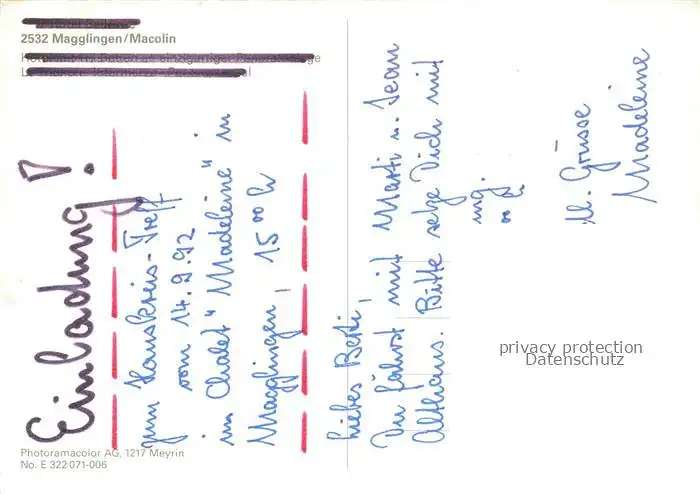 2532 Magglingen/Macolin
Einladung!
zum Hauskreis-Treff
vom 14.9.92
im Chalet "Madeleine" in
Magglingen, 15⁰⁰ h
Liebes Berti,
Du fährst mit Marti u. Jean
Althaus. Bitte setze Dich mit
ll. Grüsse
Madeleine
privacy protection
Datenschutz
Photoramacolor AG, 1217 Meyrin
No. E 322 071-006